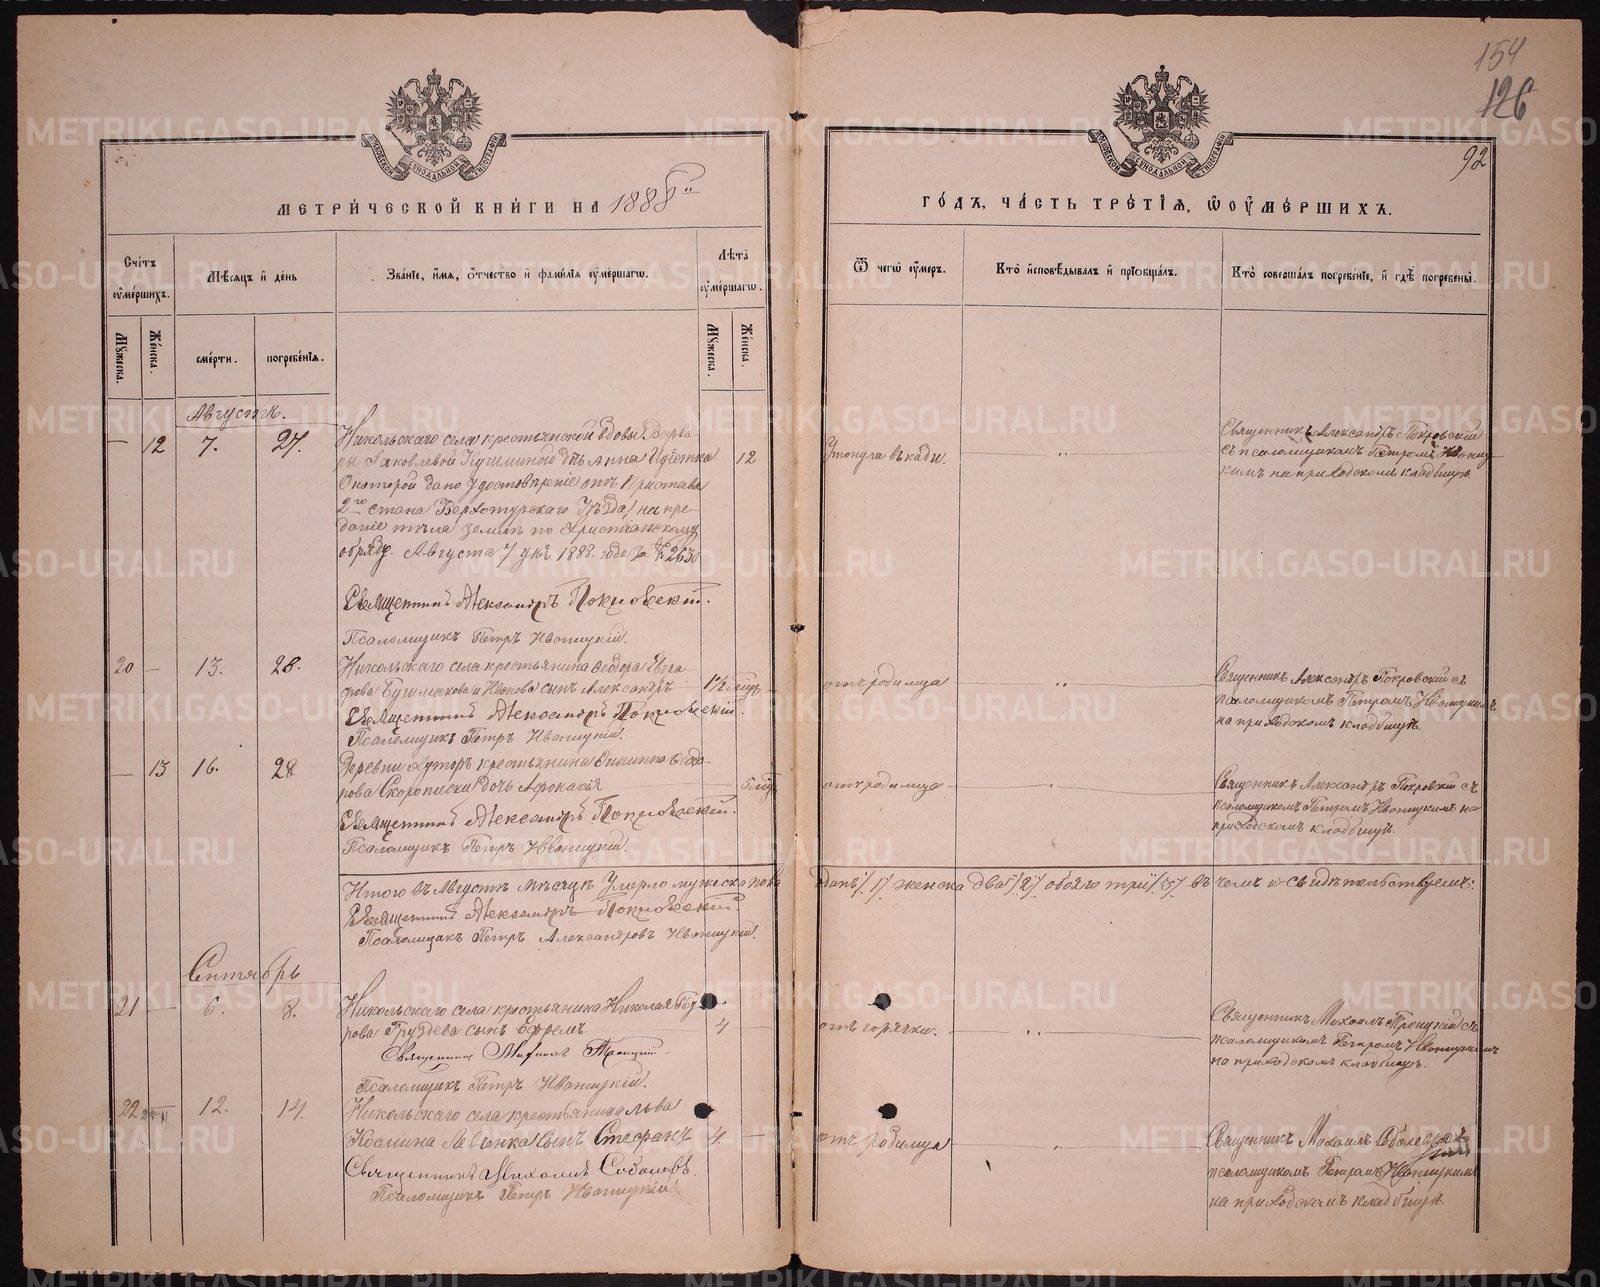 154
126
92
МЕТРИЧЕСКОЙ КНИГИ НА 1888й
ГОДЪ, ЧАСТЬ ТРЕТІЯ, Ѿ ОУМЕРШИХЪ.
Счетъ оумершихъ.
Мѣсяцъ и день
Званіе, имя, отчество и фамилія оумершагѡ.
Лѣта оумершагѡ.
Ѿ чегѡ оумеръ.
Кто исповѣдывалъ и пріобщалъ.
Кто совершалъ погребеніе, и гдѣ погребены.
Мужеска.
Женска.
смерти.
погребенія.
Мужеска.
Женска.
Августъ.
12 7. 27. Никольскаго села крестьянской вдовы Варва-
ры Яковлевой дочь Анна 12
О которой дано удостовѣреніе отъ Пристава
2го стана Верхотурскаго Уѣзда на пре-
даніе тѣла землѣ по христіанскому
обряду. Августа 7 дня 1888 года за №
Утонула въ кади.
Священникъ Александръ Покровскій
съ псаломщикомъ Петромъ Иваниц-
кимъ на приходскомъ кладбищѣ.
Священникъ Александръ Покровскій.
Псаломщикъ Петръ Иваницкій.
20 — 13. 28. Никольскаго села крестьянина Ѳеодора Евгра-
фова сынъ Александръ 1 1/2
отъ родимца
Священникъ Александръ Покровскій съ
псаломщикомъ Петромъ Иваницкимъ
на приходскомъ кладбищѣ.
Священникъ Александръ Покровскій.
Псаломщикъ Петръ Иваницкій.
— 13 16. 28 Деревни крестьянина Филиппа Ѳеодо-
рова дочь Аѳанасія
отъ родимца
Священникъ Александръ Покровскій съ
псаломщикомъ Петромъ Иваницкимъ на
приходскомъ кладбищѣ.
Священникъ Александръ Покровскій.
Псаломщикъ Петръ Иваницкій.
Итого въ Августѣ мѣсяцѣ умерло мужеска пола одинъ /1/ женска два /2/ обоего три /3/ въ чемъ и свидѣтельствуемъ:
Священникъ Александръ Покровскій.
Псаломщикъ Петръ Александровъ Иваницкій.
Сентябрь
21 — 6. 8. Никольскаго села крестьянина Николая
Груздева сынъ Ефремъ 4 —
отъ горячки.
Священникъ Михаилъ Троицкій съ
псаломщикомъ Петромъ Иваницкимъ
на приходскомъ кладбищѣ.
Священникъ Михаилъ Троицкій
Псаломщикъ Петръ Иваницкій.
22 12. 14. Никольскаго села крестьянина Льва
Косьмина сынъ Стефанъ 4. —
отъ родимца
Священникъ Михаилъ
псаломщикомъ Петромъ Иваницкимъ
на приходскомъ кладбищѣ.
Священникъ Михаилъ
Псаломщикъ Петръ Иваницкій
METRIKI.GASO-URAL.RU